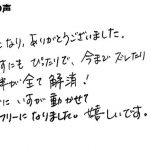 の声
になり、ありがとうございました。
すにも ぴったりで、今まで ズレたり
が全て 解消！
に いすが 動かせて
フリーになりました。嬉しいです。